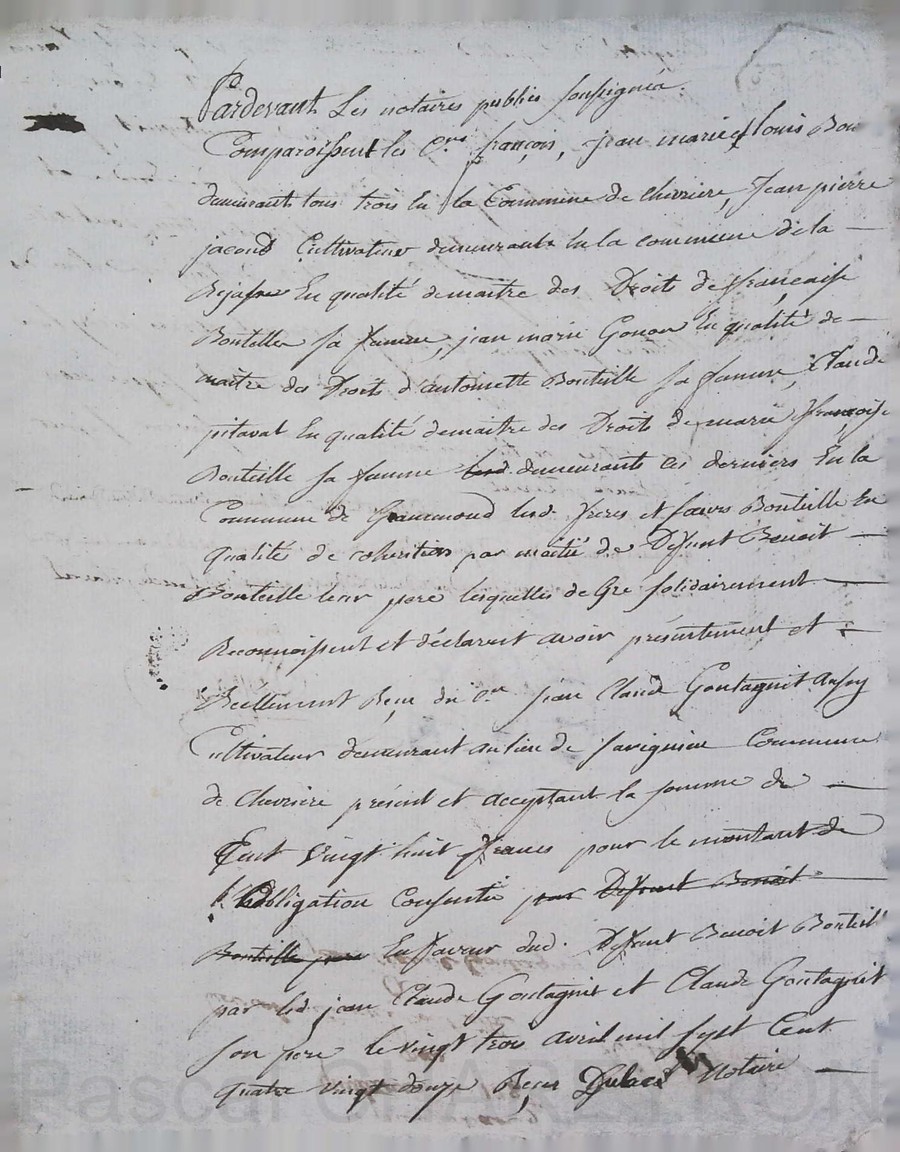 Pardevant Les notaires publics soussignés.
Comparoissent les Cens françois, jean marie et louis Bou
demeurants tous trois En la Commune de Chevriere, Jean pierre
jacoud Cultivateur demeurant En la commune de la
En qualité de maitre des Droits de françoise
Bouteille sa femme, jean marie Gonon En qualité de
maitre des Droits d'antoinette Bouteille sa femme, Claude
pitaval En qualité de maitre des Droits de marie françoise
Bouteille sa femme demeurants ces derniers En la
Commune de Grammond lesd. freres et sœurs Bouteille En
qualité de cohéritiers par moitié de Défunt Benoit
Bouteille leur pere lesquelles de Gré solidairement
Reconnoissent et déclarent avoir présentement et
Réellement Reçu du Cen jean Claude Goutagnit
Cultivateur demeurant au lieu de Commune
de Chevriere présent et acceptant la somme de
Cent vingt huit francs pour le montant de
l'obligation Consentie par Défunt Benoit
Bouteille pere En faveur dud. Défunt Benoit Bouteil
par led. jean Claude Goutagnit et Claude Goutagnit
son pere le vingt trois avril mil sept Cent
quatre vingt douze Reçue Dulac Notaire
Pascal ARZTRON